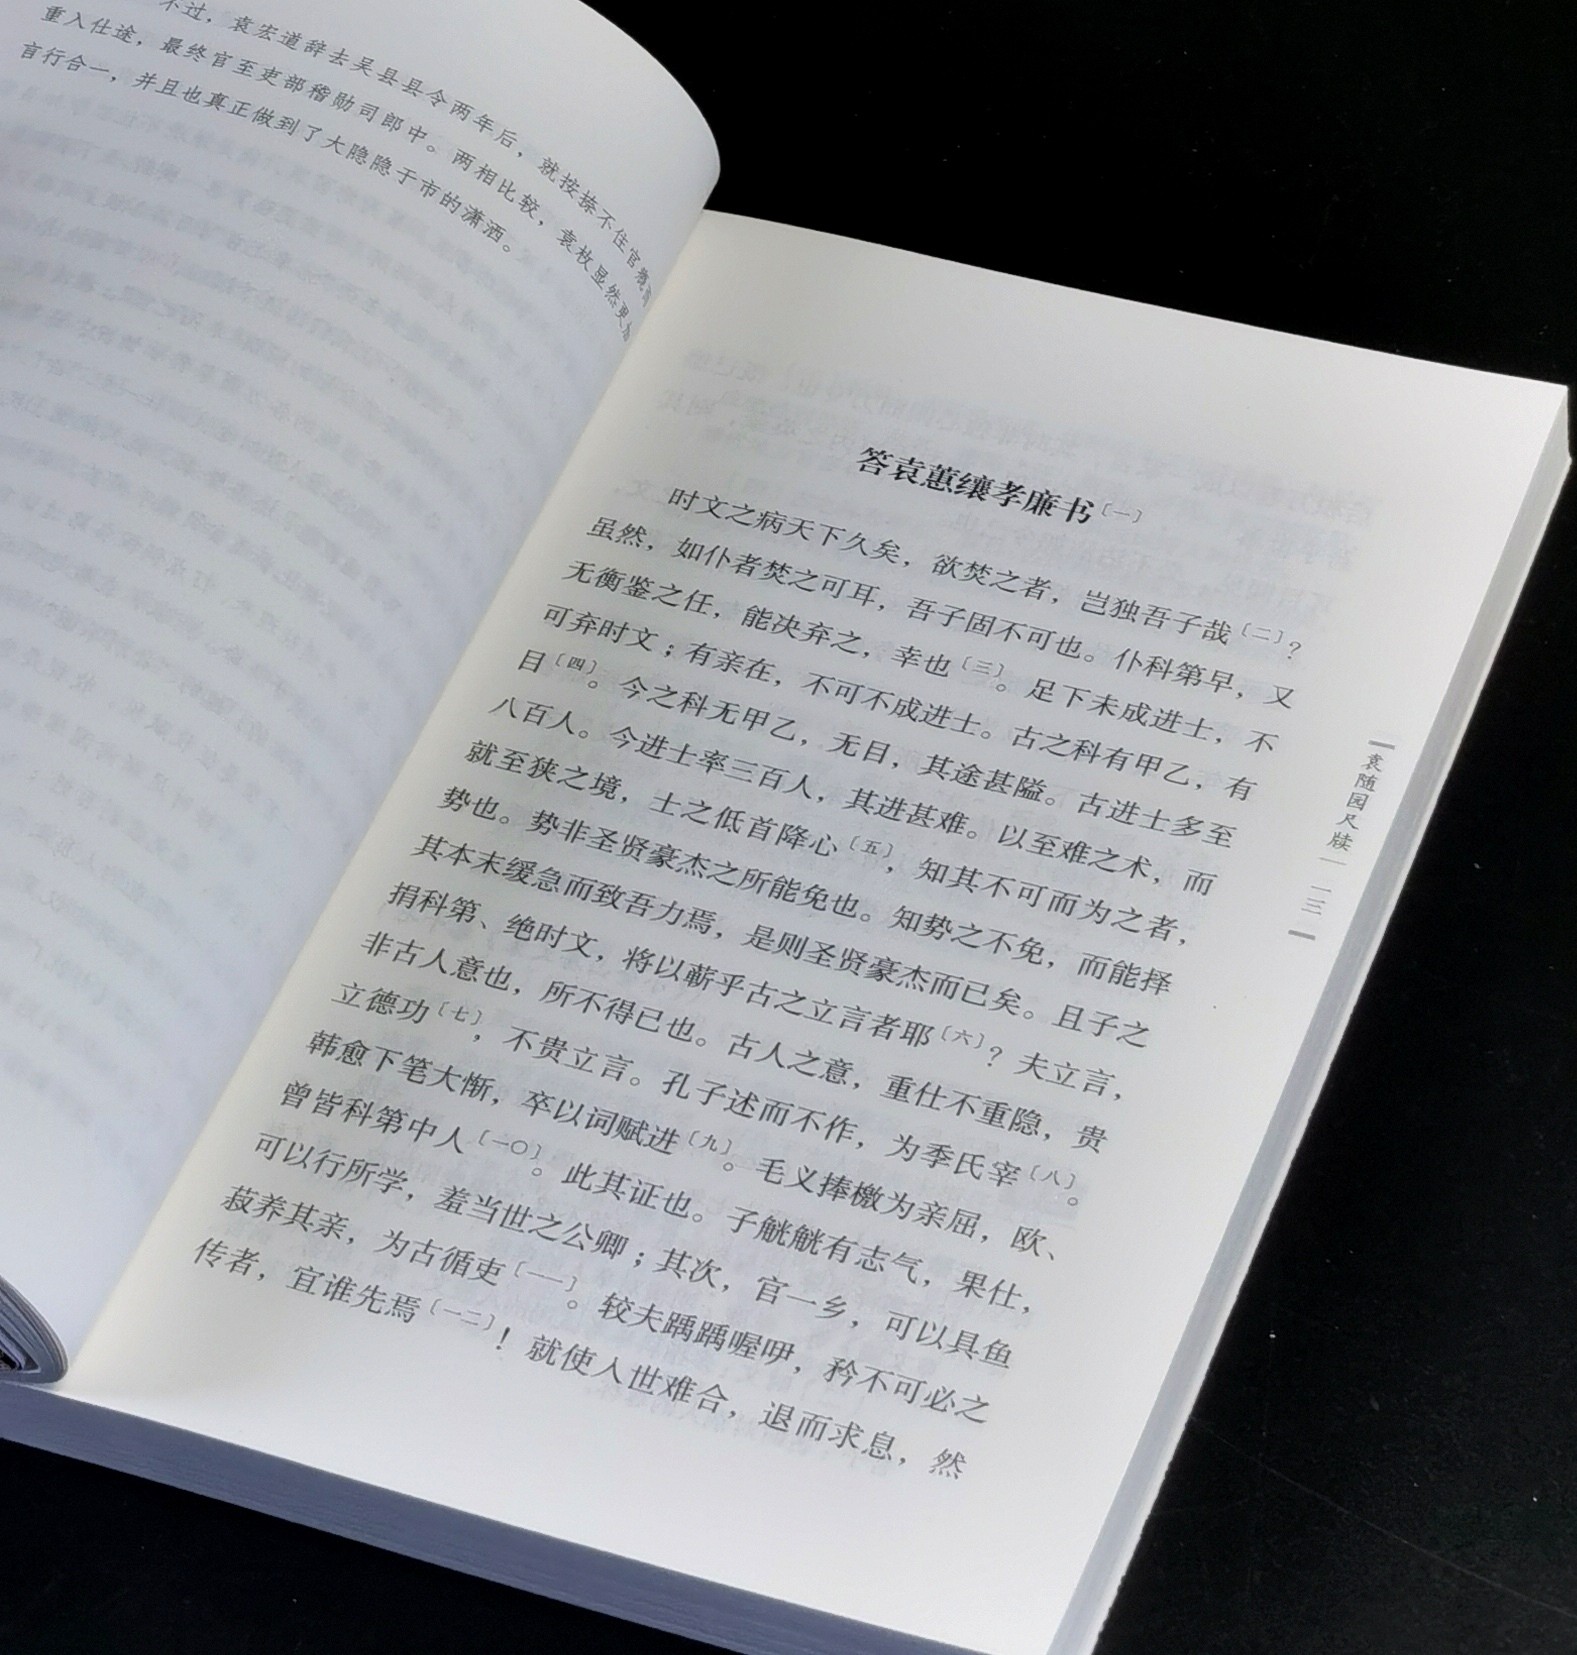 不过，袁宏道辞去吴县县令两年后，就按捺不住官瘾
重入仕途，最终官至吏部稽勋司郎中。两相比较，袁枚显然更
言行合一，并且也真正做到了大隐隐于市的潇洒。
答袁蕙纕孝廉书〔一〕
时文之病天下久矣，欲焚之者，岂独吾子哉〔二〕？
虽然，如仆者焚之可耳，吾子固不可也。仆科第早，又
无衡鉴之任，能决弃之，幸也〔三〕。足下未成进士，不
可弃时文；有亲在，不可不成进士。古之科有甲乙，有
目〔四〕。今之科无甲乙，无目，其途甚隘。古进士多至
八百人。今进士率三百人，其进甚难。以至难之术，而
就至狭之境，士之低首降心〔五〕，知其不可而为之者，
势也。势非圣贤豪杰之所能免也。知势之不免，而能择
其本末缓急而致吾力焉，是则圣贤豪杰而已矣。且子之
捐科第、绝时文，将以蕲乎古之立言者耶〔六〕？夫立言，
非古人意也，所不得已也。古人之意，重仕不重隐，贵
立德功〔七〕，不贵立言。孔子述而不作，为季氏宰〔八〕。
韩愈下笔大惭，卒以词赋进〔九〕。毛义捧檄为亲屈，欧、
曾皆科第中人〔一〇〕。此其证也。子觥觥有志气，果仕，
可以行所学，羞当世之公卿；其次，官一乡，可以具鱼
菽养其亲，为古循吏〔一一〕。较夫踽踽喔咿，矜不可必之
传者，宜谁先焉〔一二〕！就使人世难合，退而求息，然
袁随园尺牍
一三